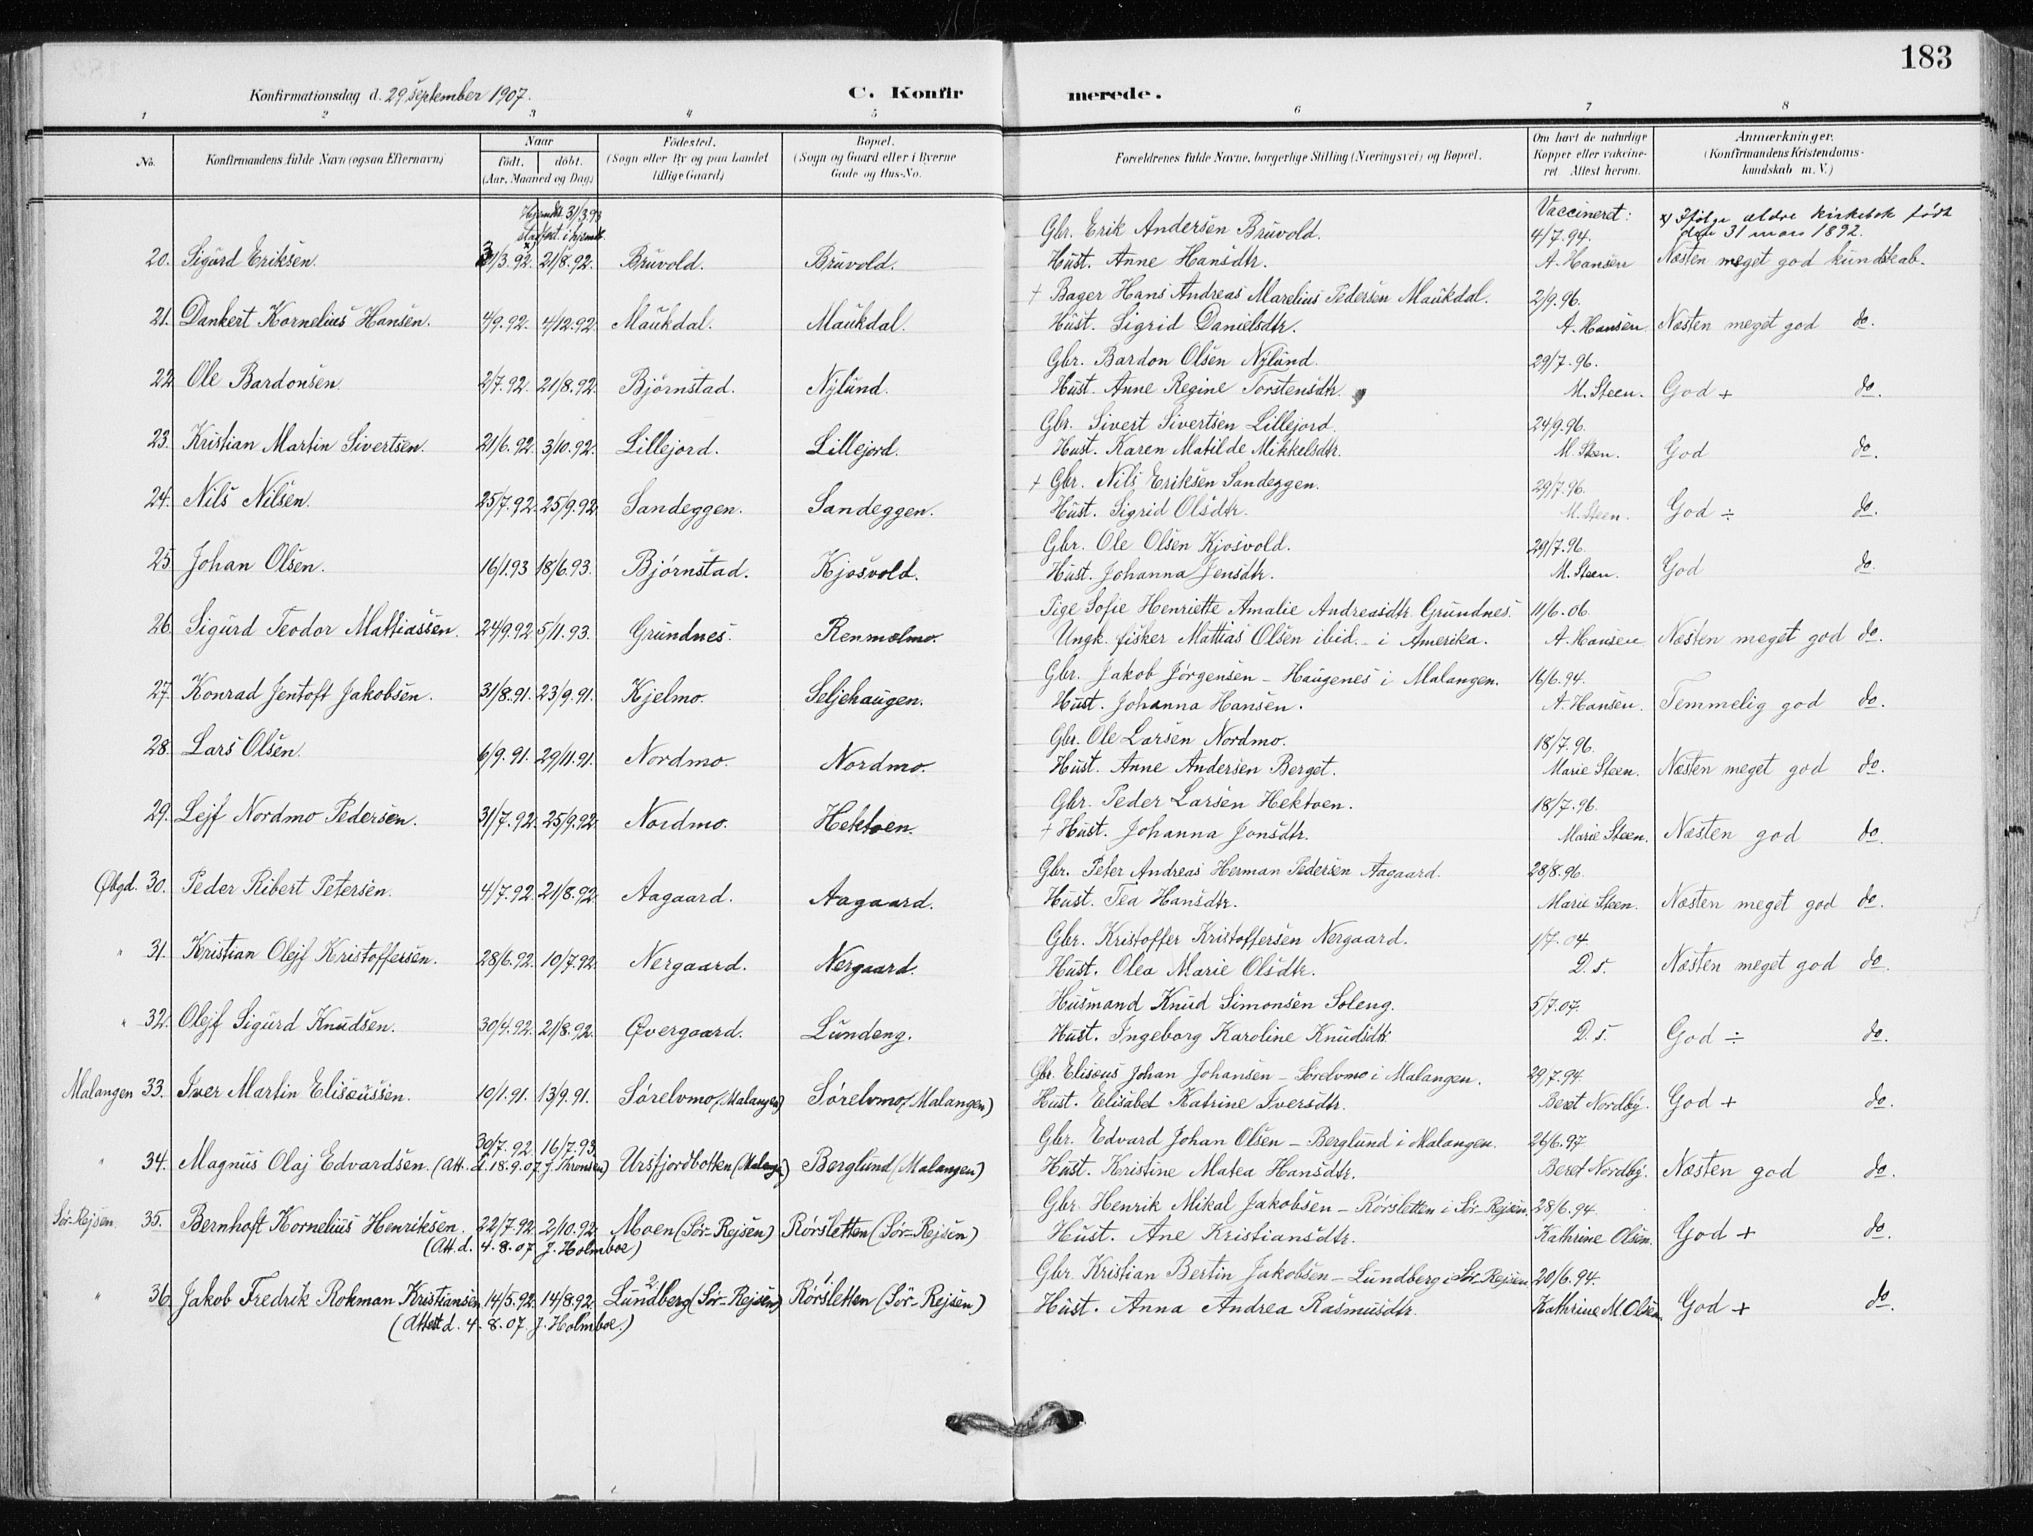 183
Konfirmationsdag d. 29 september 1907. C. Konfirmerede.
1 2 3 4 5 6 7 8
No. Konfirmandens fulde Navn (ogsaa Efternavn) Naar født. døbt. (Aar, Maaned og Dag) Fødested. (Sogn eller By og paa Landet tillige Gaard) Bopæl. (Sogn og Gaard eller i Byerne Gade og Hus-No. Forældrenes fulde Navne, borgerlige Stilling (Næringsvei) og Bopæl. Om havt de naturlige Kopper eller vaccineret Attest herom. Anmærkninger. (Konfirmandens Kristendomskundskab m. V.)
Hjemdt. 31/3.93 Vaccineret: x) Ifølge ældre kirkebok født
stadfæst. i hjemdt. Gbr. Erik Andersen Bruvold. 4/7.94. 31 mars 1892.
20. Sigurd Eriksen. 31/3.92. 21/8.92. Bruvold. Bruvold. Hust. Anne Hansdtr. A. Hansen Næsten meget god kundskab.
+ Bager Hans Andreas Marelius Pedersen Maukdal. 2/9.96.
21. Dankert Kornelius Hansen. 4/9.92. 4/12.92. Maukdal. Maukdal. Hust. Sigrid Danielsdtr. A. Hansen Næsten meget god do.
Gbr. Bardon Olsen Nylund. 29/7.96.
22. Ole Bardonsen. 2/7.92. 21/8.92. Bjørnstad. Nylund. Hust. Anne Regine Torstensdtr. M. Steen. God + do.
Gbr. Sivert Sivertsen Lillejord. 24/9.96.
23. Kristian Martin Sivertsen. 21/6.92. 3/10.92. Lillejord. Lillejord. Hust. Karen Matilde Mikkelsdtr. M. Steen. God do.
+ Gbr. Nils Eriksen Sandeggen. 29/7.96.
24. Nils Nilsen. 25/7.92. 25/9.92. Sandeggen. Sandeggen. Hust. Sigrid Olsdtr. M. Steen. God ÷ do.
Gbr. Ole Olsen Kjosvold. 29/7.96.
25. Johan Olsen. 16/1.93 18/6.93. Bjørnstad. Kjosvold. Hust. Johanna Jensdtr. M. Steen. God do.
Pige Sofie Henriette Amalie Andreasdtr. Grundnes. 11/6.06.
26. Sigurd Teodor Mattiassen. 24/9.92 5/11.93. Grundnes. Renmælmo. Ungk. fisker Mattias Olsen ibid. - i Amerika. A. Hansen Næsten meget god do.
Gbr. Jakob Jørgensen - Haugenes i Malangen. 16/6.94.
27. Konrad Jentoft Jakobsen. 31/8.91. 23/9.91. Kjelmo. Seljehaugen. Hust. Johanna Hansen. A. Hansen. Temmelig god do.
Gbr. Ole Larsen Nordmo. 18/7.96.
28. Lars Olsen. 6/9.91. 29/11.91. Nordmo. Nordmo. Hust. Anne Andersen Berget. Marie Steen. Næsten meget god do.
Gbr. Peder Larsen Hektoen. 18/7.96.
29. Lejf Nordmo Pedersen. 31/7.92. 25/9.92. Nordmo. Hektoen. + Hust. Johanna Jonsdtr. Marie Steen. Næsten god do.
Gbr. Peter Andreas Herman Pedersen Aagaard. 28/8.96.
Øbgd. 30. Peder Ribert Petersen. 4/7.92. 21/8.92. Aagaard. Aagaard. Hust. Tea Hansdtr. Marie Steen. Næsten meget god do.
Gbr. Kristoffer Kristoffersen Nergaard. 1/7.04.
" 31. Kristian Olejf Kristoffersen. 28/6.92. 10/7.92. Nergaard. Nergaard. Hust. Olea Marie Olsdtr. D. s. Næsten meget god do.
Husmand Knud Simonsen Soleng. 5/7.07.
" 32. Olejf Sigurd Knudsen. 30/4.92. 21/8.92. Øvergaard. Lundeng. Hust. Ingeborg Karoline Knudsdtr. D. s. God ÷ do.
Gbr. Elisæus Johan Johansen - Sørelvmo i Malangen. 29/7.94.
Malangen 33. Iver Martin Elisæussen. 10/1.91. 13/9.91. Sørelvmo (Malangen) Sørelvmo (Malangen) Hust. Elisabet Katrine Iversdtr. Beret Nordby. God + do.
30/7.92. 16/7.93. Gbr. Edvard Johan Olsen - Berglund i Malangen. 26/6.97.
" 34. Magnus Olaj Edvardsen. (Att. d. 18.9.07 J. Thronsen) Ursfjordbotten (Malangen) Berglund (Malangen) Hust. Kristine Matea Hansdtr. Beret Nordby. Næsten god do.
Gbr. Henrik Mikal Jakobsen - Rørsletten i Sør-Rejsen. 28/6.94.
Sør-Rejsen 35. Bernhoft Kornelius Henriksen. 22/7.92. 2/10.92. Moen (Sør-Rejsen) Rørsletten (Sør-Rejsen) Hust. Ane Kristiansdtr. Kathrine Olsen. God + do.
(Att. d. 4.8.07 J. Holmboe)
Gbr. Kristian Bertin Jakobsen - Lundberg i Sør-Rejsen 20/6.94.
" 36. Jakob Fredrik Rokman Kristiansen 14/5.92. 14/8.92. 2 Lundberg (Sør-Rejsen) 1 Rørsletten (Sør-Rejsen) Hust. Anna Andrea Rasmusdtr. Kathrine M. Olsen. God + do.
(Attest d. 4.8.07 J. Holmboe.)